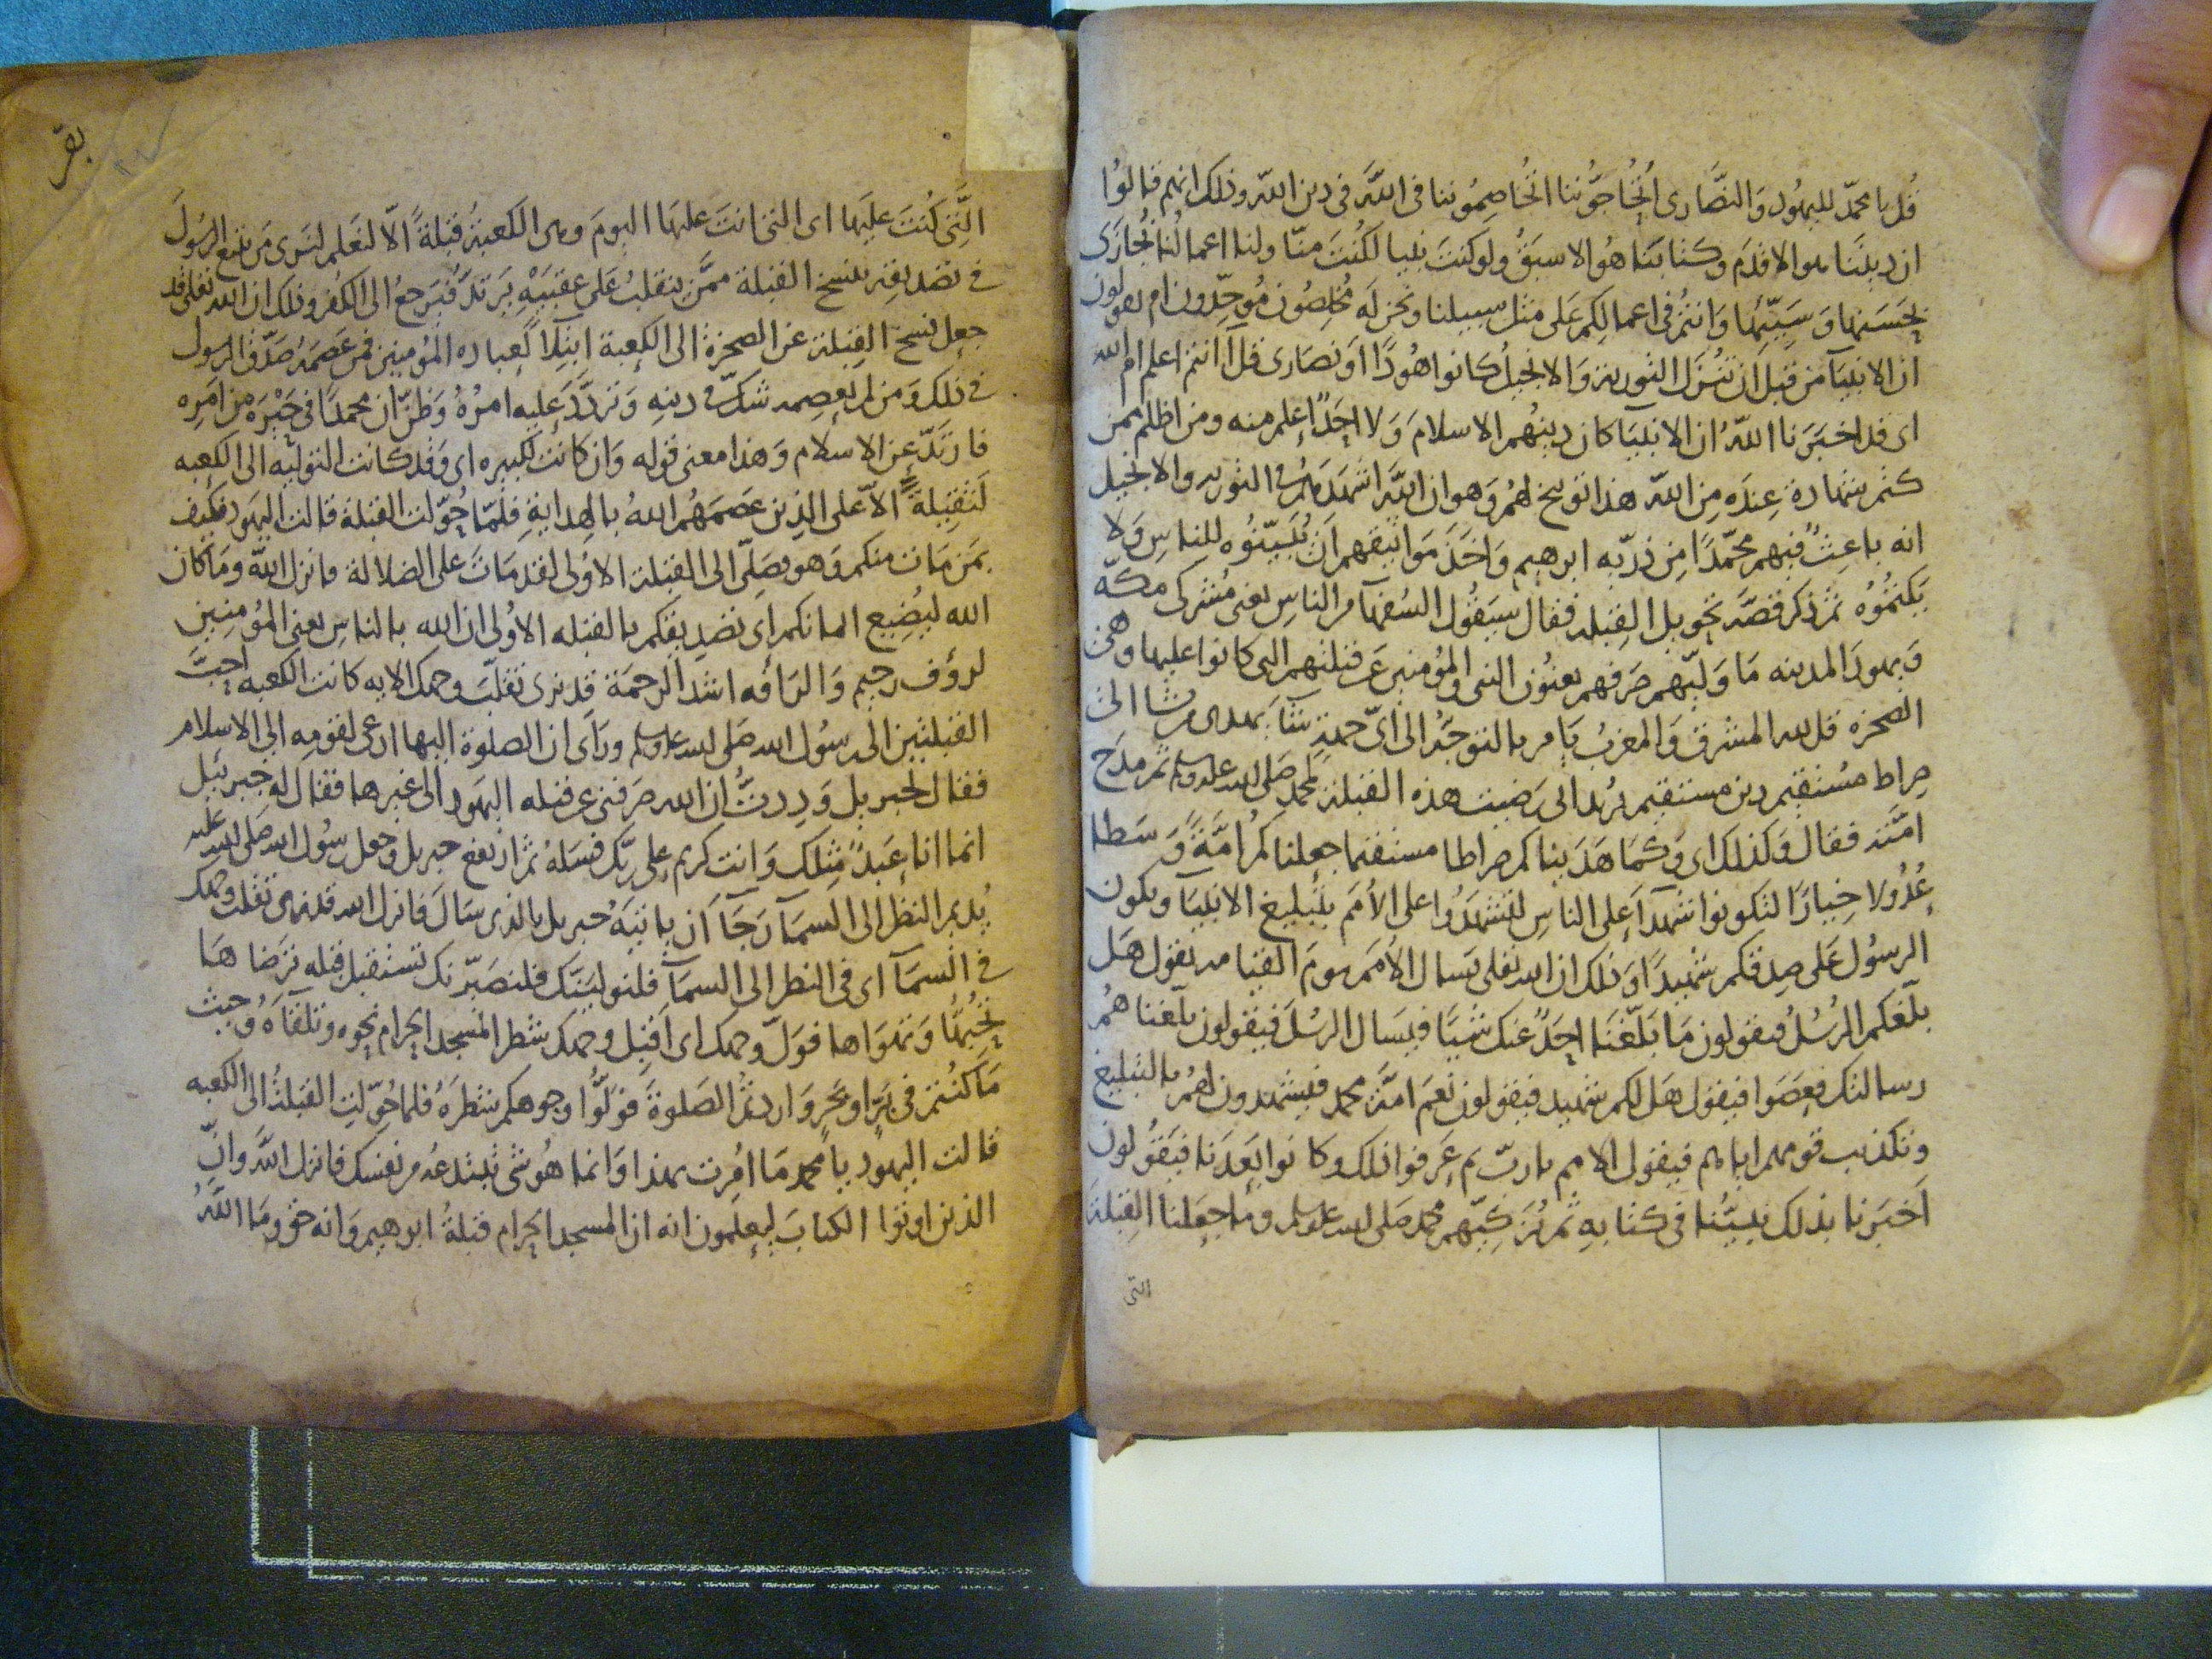 قُل يا محمّد لليهُود وَالنّصَارى اتُحاجّوُننا اتُخاصِمُوننا فى اللّه فى دين اللّه وذلك انهم قالوُا
ان ديننَا هو الاقدَم وكتابنَا هُو الاسبَقُ ولو كنتَ نبيا لكُنتَ منّا ولنا اعمالُنا نُجازَى
بحَسَنها وَسَيّئها وَانتُم فى اعمالكِم عَلى مثل سبيلنا ونحن لَه مُخلِصُون مُوحِّدُون ام يقولون
ان الانبيآ من قبَل ان تنُزَل التوريةِ وَالانجيلُ كانوا هُودًا اوَ نصَارى قل أانتم اعلم ام الله
اى قد اخبَرَنا اللّهُ ان الانبيَا كان دينهُم الاسلامَ وَلا احَدًا اعلم منه ومن اظلم ممن
كتم شهادة عِندَه مِنَ اللّه هذا توبيخ لهُم وَهو ان اللّه اشهَدَهُم فى التوريهِ والانجيل
انه باعِثُ فيهم محمّدًا مِن ذرّيه ابرهيم وَاخَذَ مَواثيقهم اَن يُبيّنُوه للناسِ وَلا
يَكتمُوُه ثم ذكر قصّة تحويل القِبله فقال سيَقُول السُفهآ من الناسِ يعنى مُشركى مكّة
وَيهودَ المدينه مَا وَلّيهم صَرفهم يعنوُن النبى والمُؤمنين عَن قبلتهم التى كانوا عليها وهى
الصخره قل لله المشرق وَالمغربُ يَامر بالتوجّه الى اىّ جهةٍ شآ يهدى من يشا الى
صِراط مسُتقيم دين مستقيم يُريد انى رَضيت هذه القبلة لمحمد صَلى الله عليه وسلم ثم مدَح
امّته فقال وَكذلك اى وَكمَا هَدَيناكم صراطا مستقيما جعلناكم امّةً وَسَطا
عُدُولا خِيارًا لتكونوا شهدآ على الناسِ لتشهَدُوا على الامَم بتبليغ الانبيَا ويكون
الرسُول عَلى صِدقكم شهيدًا وَذلك ان الله تعلى يسال الاُمَم يومَ القيامه يقول هَل
بلّغكم الرسُلُ فيقولون مَا بَلّغنَا احَدُ عنك شيَا فيسَال الرسُلَ فيَقولون بلّغناهُم
رسالتك فعصَوا فيقول هَل لكم شهيد فيقولون نعَم امّة محمد فيشهدون لهُم بالتبليغ
وتكذيب قومهم اياهم فيقول الامم يارب بم عَرفوا ذلك وكانوا بَعدَنا فيَقُولون
اَخبَرنا بذلك نبيّنا فى كتابهِ ثم يُزكِّيهم محمد صَلى الله عليه وسلم وما جعلنا القِبلةَ
التى
بقر
التِّى كُنتَ علَيها اى التى انتَ عليهَا اليومَ وهى الكَعبةُ قبلةً الّا لنعَلم لنرَى مَن يتبع الرسُولَ
فى تصديقه بنسخ القبلة ممَّن ينقلبُ عَلى عقبَيْهِ يَرتدّ فيَرجعُ الى الكُفر وذلك ان الله تعلى قد
جعل نسخ القِبلة عن الصخرة الى الكعبة ابتِلآ لعِباده المؤمنين فمن عَصَمَه صَدّق الرسول
فى ذلك وَمن لم يعصِمه شكّ فى دينِهِ وَتردّدَ عليه امرُهُ وَظنّ ان محمدًا فى حَيْرَة من امَرِه
فارتدّ عن الاسلام وَهذا معنى قوله وَان كانت لكبيره اى وَقد كانت التوليه الى الكعبه
لَثقيلةً الّا على الذين عصَمهُم اللهُ بالهدايةِ فلمّا حُوّلت القبلة قالت اليهود فكيف
بمَن مَات منكم وَهو يصَلّى الى القبلة الاوُلى لقد مَات على الضلالة فانزل اللّه وَمَا كان
الله ليُضِيع ايمانكم اى تصديقكم بالقبله الاوُلى ان الله بالناسِ يعنى المُؤمِنين
لرؤف رحيم وَالرَافه اشدّ الرحمَة قد نرى تقلّبَ وجهك الايه كانت الكعبه احبَّ
القبلتين الى رسوُل الله صَلى الله عليه وسلم ورَاَى ان الصلوة اليها ادعى لقومِه الى الاسلام
فقال لجبريل وَدِدتُّ ان الله صَرفنى عن قبله اليهود الى غيرها فقال له جبريئيل
انما انا عَبدً مِثلك وَانت كريم على ربّك فسَله ثم ارتفع جبريل وجعل رسُول الله صَلى الله عليه
يُديم النظر الى السمَآ رَجَآ اَن ياتيَهُ جبريل بالذى سَالَ فانزل الله قد نرى تقلب وجهك
فى السمَآ اى فى النظر الى السمَآ فلنوليَنّك فلنصَيّرنك تستقبل قبله ترَضاهَا
تُحِبُّهَا وَتهوَاها فوَلّ وجهك اى اَقبل وجهك شطر المسجد الحرام نحوه وتلقآهُ وَحيث
مَا كنتُم فى بَرٍّ اوبَحرٍ وَاردتمُ الصَلوةَ فوَلّوُا وجوهكم شطرَهُ فلما حُوّلتِ القبلةُ الى الكعبه
قالت اليهود يا محمد مَا اُمِرت بهذا وَانما هُو شى تبتدعُه من نفسك فانزل اللّه وانّ
الذين اوتوا الكتابَ ليعلمون انه ان المسجد الحرام قبلةُ ابرهيم وَانه حق ومَا اللّهُ